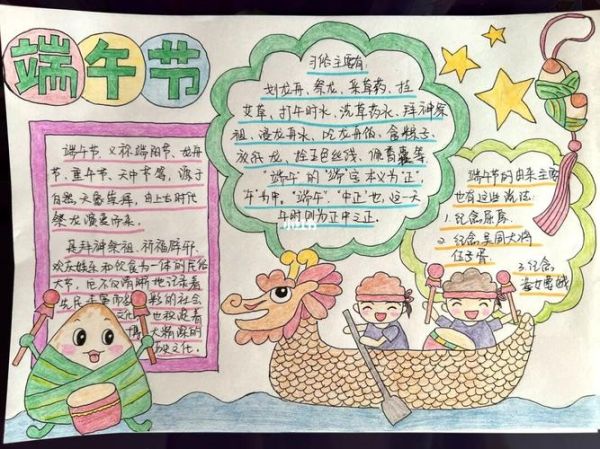 端午节
端午节，又称端阳节、龙舟
节、重午节、天中节等，源于
自然天象崇拜，由上古时代
祭龙演变而来。
是拜神祭祖、祈福辟邪、
欢庆娱乐和饮食为一体的民俗
大节，
的社会
文化
历史文化。
习俗主要有：
划龙舟、祭龙、采草药、挂
艾草、打午时水、洗草药水、拜神祭
祖、浸龙舟水、吃龙舟饭、食粽子、
放纸龙、拴五色丝线、佩香囊等
"端午"的"端"字本义为"正"，
"午"为"中"。"端午"，"中正"也，这一天
午时则为正中之正。
端午节的由来主要
也有这些说法：
1.纪念屈原
2.纪念吴国大将
伍子胥
3.纪念
孝女曹娥